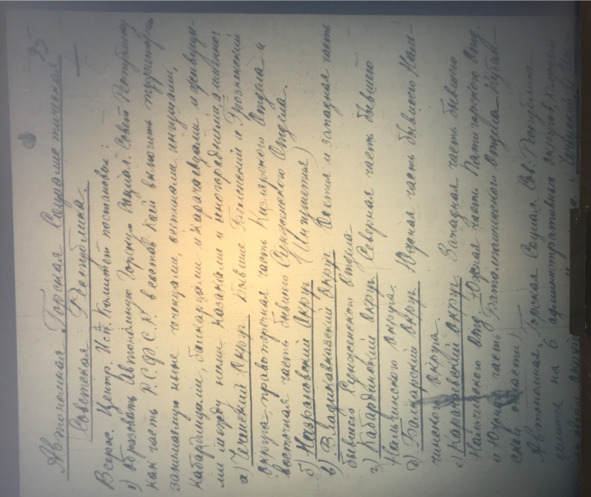 35
Автономная Горская Социалистическая
Советская Республика.
Всерос. Центр. Исп. Комитет постановил:
1) образовать Автономную Горскую Социал. Совет. Республику
как часть Р.С.Ф.С.Р. в состав коей включить территорию
занимаемую ныне чеченцами, осетинами, ингушами,
кабардинцами, балкарцами и карачаевцами и живущими
между ними казаками и иногородними
а) Чеченский Округ бывшие Веденский и Грозненский
округа, правотеречная часть Кизлярского Отдела и
восточная часть бывшего Сунженского Отдела.
б) Назрановский Округ (Ингушетия)
в) Владикавказский Округ Осетия и западная часть
бывшего Сунженского отдела
г) Кабардинский Округ (Северная часть бывшего
Нальчикского Округа.
д) Балкарский Округ Южная часть бывшего Наль-
чикского Округа.
е) Карачаевский Округ Западная часть бывшего
Нальчикского Округа Южная часть Пятигорского Отд.
и Южная часть Баталпашинского Отдела Кубан-
ской области)
Автономная Горская Социал Сов. Республика
на 6 административных округов